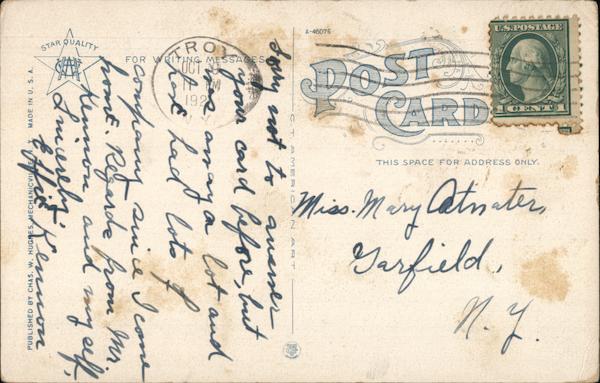 STAR QUALITY
FOR WRITING MESSAGES
MADE IN U.S.A.
PUBLISHED BY CHAS. W. HUGHES, MECHANICVILLE,
TROY
OCT
192
A-46076
POST
CARD
THIS SPACE FOR ADDRESS ONLY.
U.S. POSTAGE
1 CENT 1
Sorry not to answer
your card before, but
was away a lot and
had had lots of
company since I come
home. Regards from Mr.
Lennon and myself,
Sincerely,
Effie Lennon
Miss. Mary Atwater,
Garfield,
N.Y.